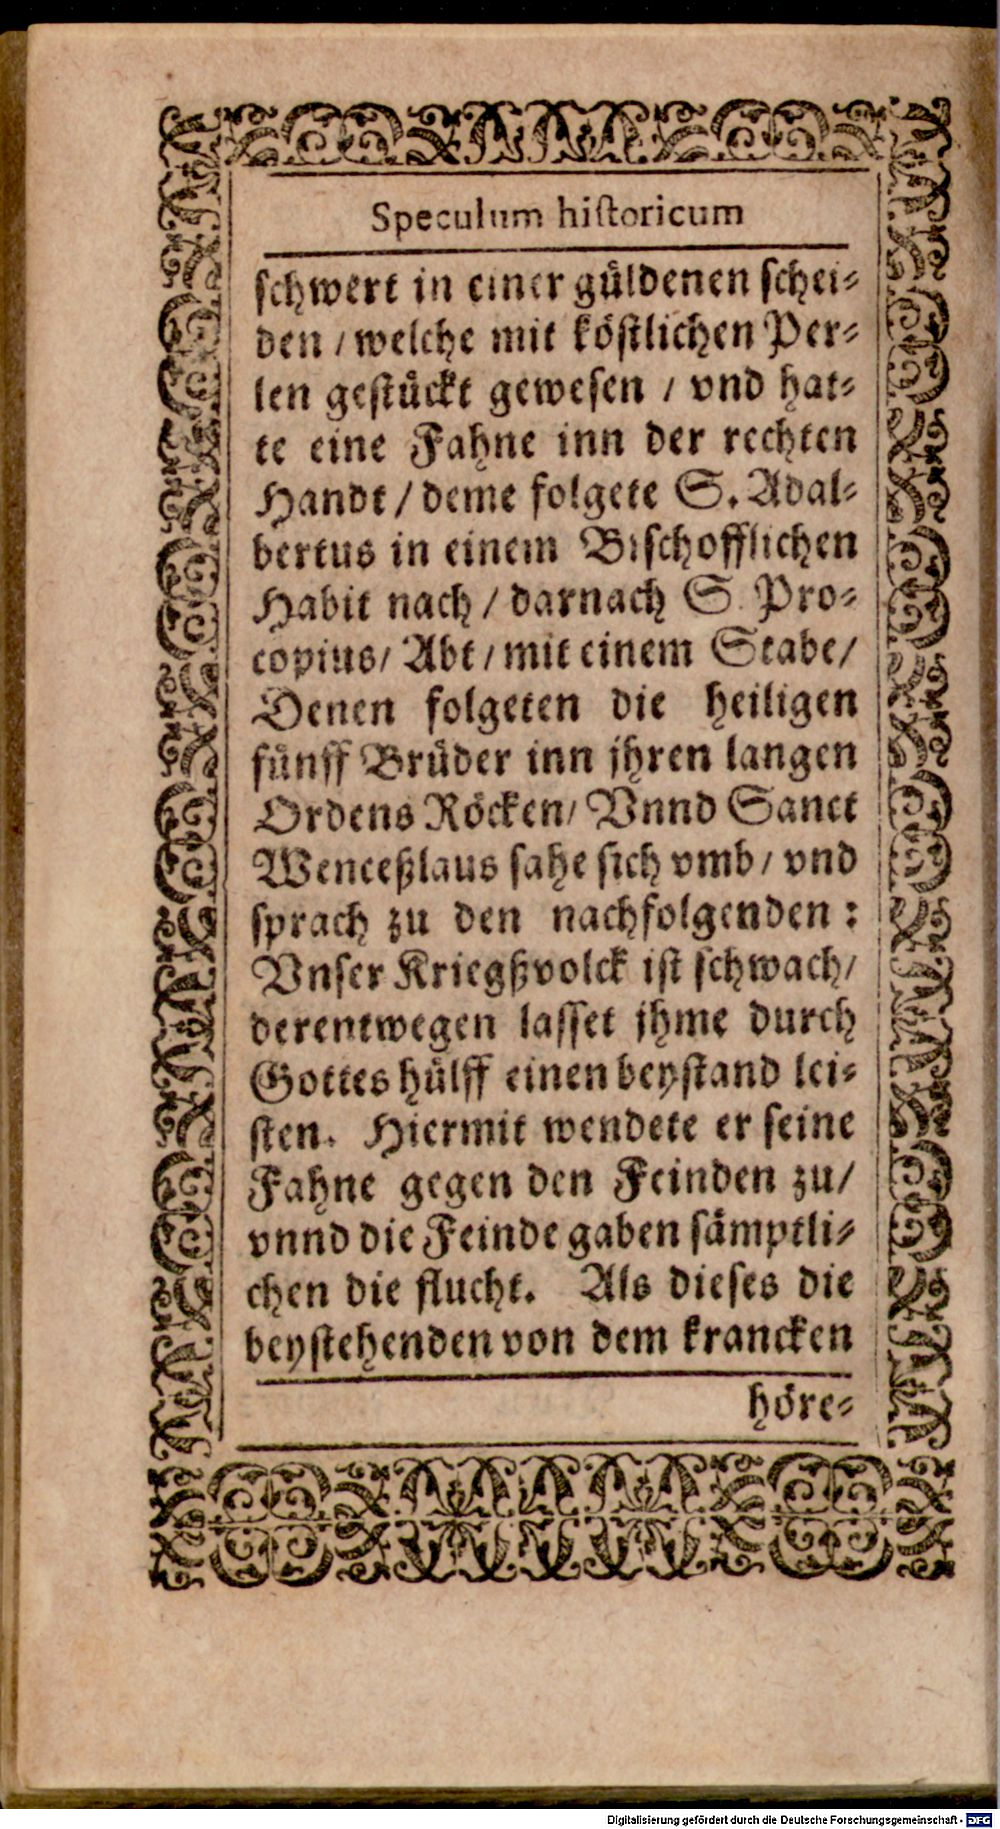 Speculum historicum
schwert in einer güldenen schei-
den / welche mit köstlichen Per-
len gestückt gewesen / vnd hat-
te eine Fahne inn der rechten
Handt / deme folgete S. Adal-
bertus in einem Bischofflichen
Habit nach / darnach S Pro-
copius / Abt / mit einem Stabe /
Denen folgeten die heiligen
fünff Brüder inn jhren langen
Ordens Röcken / Vnnd Sanct
Wenceßlaus sahe sich vmb / vnd
sprach zu den nachfolgenden :
Vnser Kriegßvolck ist schwach /
derentwegen lasset jhme durch
Gottes hülff einen beystand lei-
sten. Hiermit wendete er seine
Fahne gegen den Feinden zu /
vnnd die Feinde gaben sämptli-
chen die flucht. Als dieses die
beystehenden von dem krancken
höre-
Digitalisierung gefördert durch die Deutsche Forschungsgemeinschaft - DFG